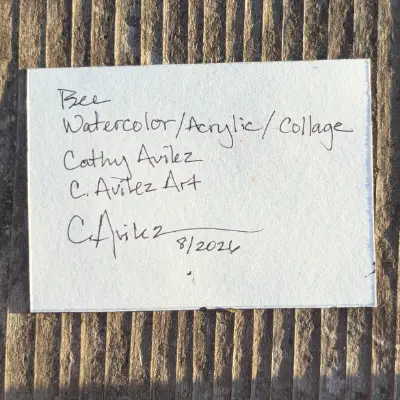 Bee
Watercolor/Acrylic/Collage
Cathy Avilez
C. Avilez Art
C. Avilez
8/2026